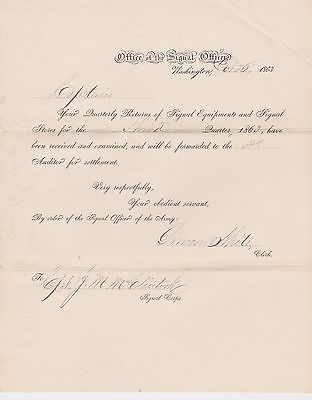 Office of the Signal Officer,
Washington, Oct 26, 1863
Captain
Your Quarterly Returns of Signal Equipments and Signal
Stores for the Second Quarter, 1863, have
been received and examined, and will be forwarded to the 2d
Auditor for settlement.
Very respectfully,
Your obedient servant,
By order of the Signal Officer of the Army:
Clerk.
To Capt J. M. McClintock
Signal Corps.